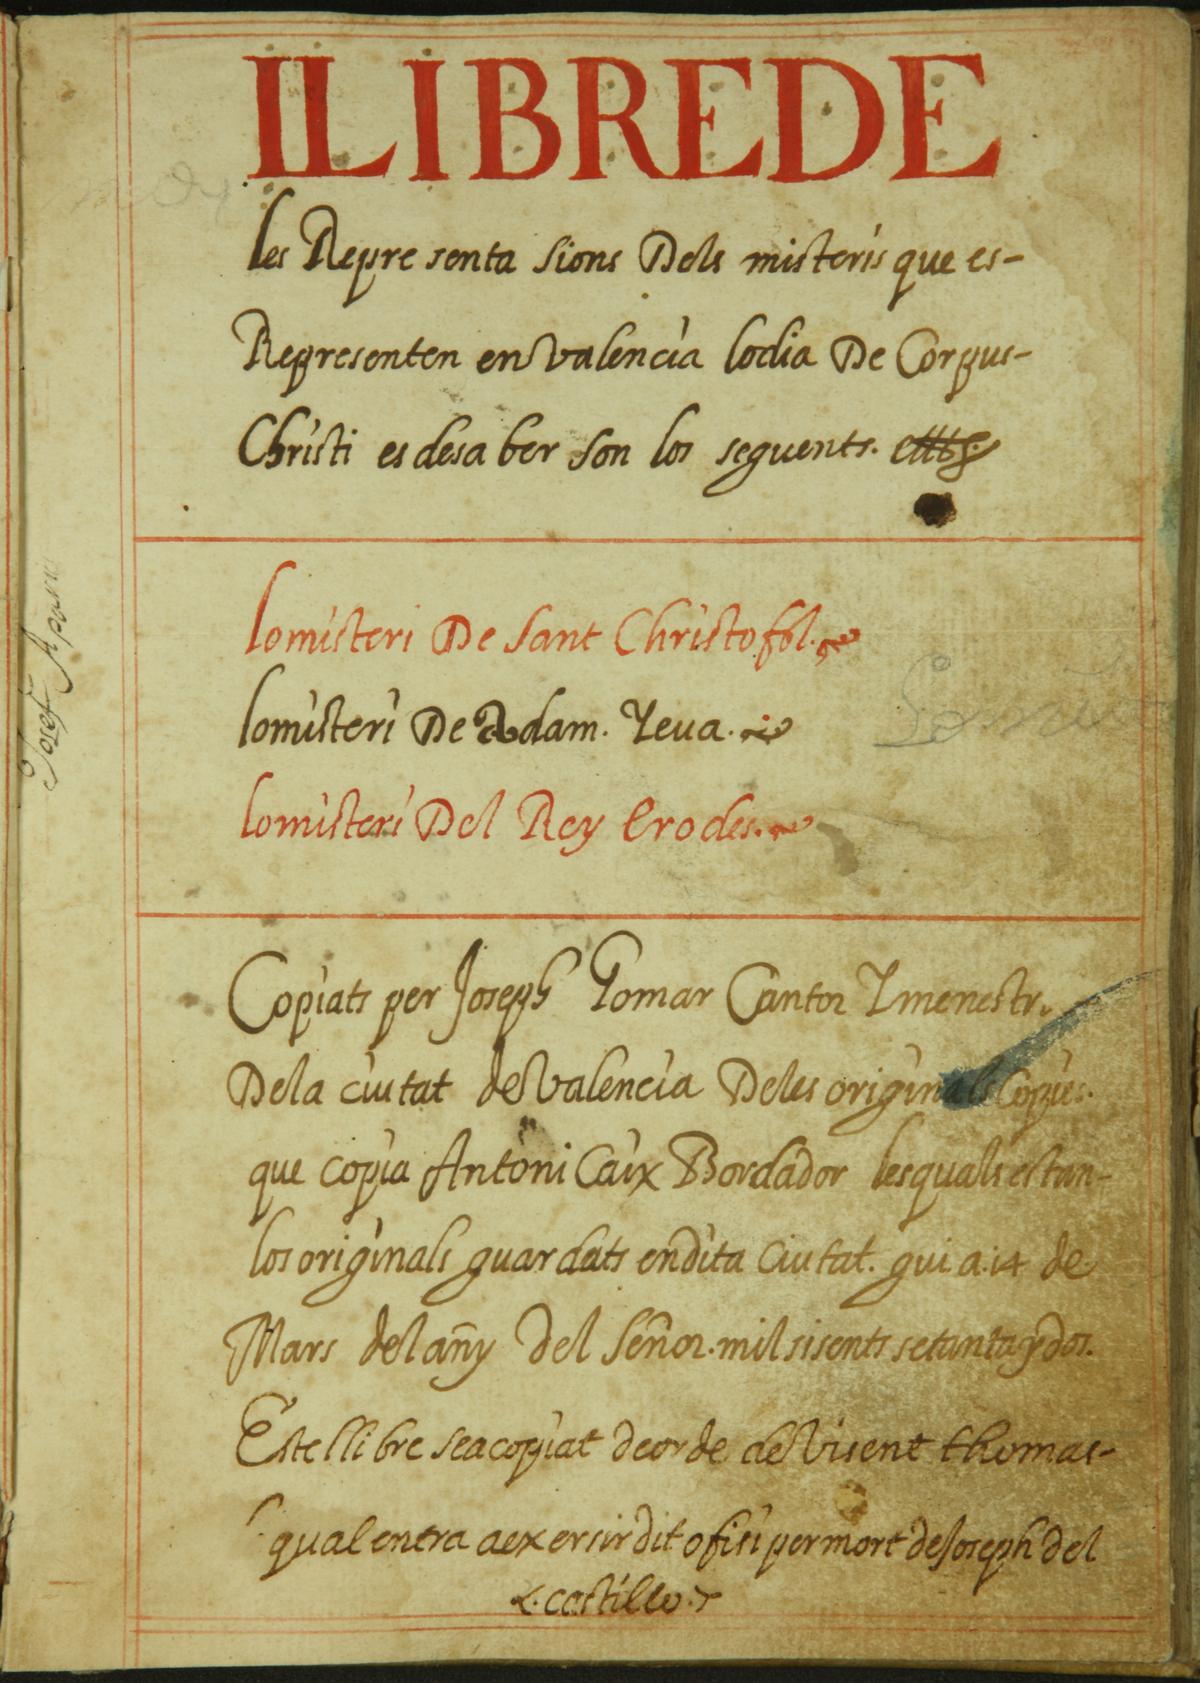 LLIBRE DE
les Repre senta sions Dels misteris que es-
Representen en valencia lo dia De Corpus-
Christi es de sa ber son los seguents.
lo misteri De Sant Christofol.
lo misteri De Adam. Y eva.
lo misteri Del Rey Erodes.
Copiats per Joseph Gomar Cantor Y menestr.
De la ciutat de Valencia De les originals Copies.
que copia Antoni Caix Bordador les quals estan-
los originals guardats en dita Ciutat. gui a. 14 de
Mars del añy del Señor. mil sisents setanta y dos.
Este llibre se a copiat de orde de Visent thomas-
qual entra a exersir dit ofisi per mort de Joseph del
castillo.
Josef Apari